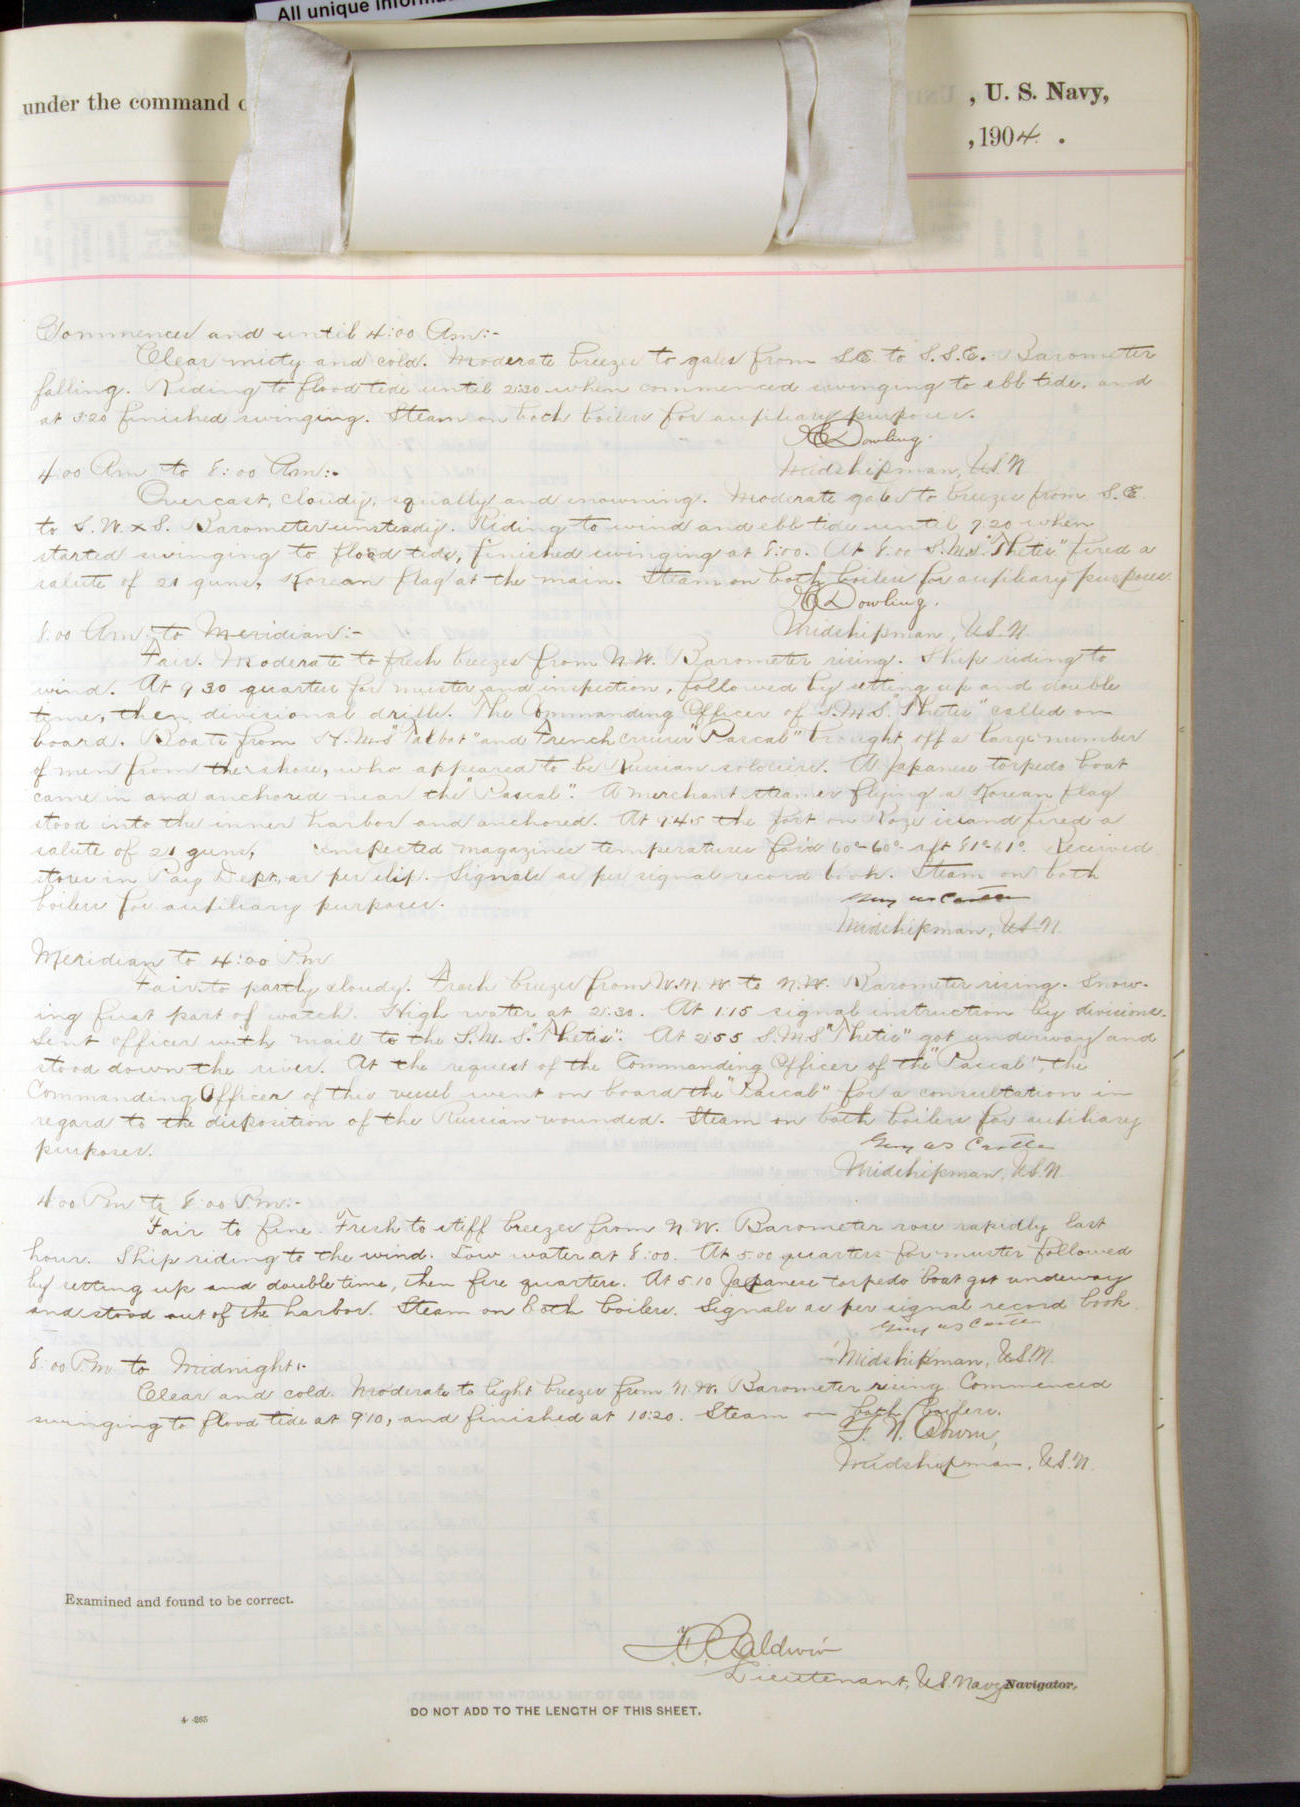 All unique
under the command
, U. S. Navy,
, 1904 .
Commences and until 4:00 Am:-
Clear misty and cold. Moderate breezes to gales from S.E. to S.S.E. Barometer
falling. Riding to flood tide until 2:30 when commenced swinging to ebb tide, and
at 3.20 finished swinging. Steam on both boilers for auxiliary purposes.
Dowling.
Midshipman, U.S.N
4:00 Am to 8:00 Am:-
Overcast, cloudy, squally and snowning. Moderate gales to breezes from S.E.
to S.W. x S. Barometer unsteady. Riding to wind and ebb tide until 7.20 when
started swinging to flood tide, finished swinging at 8:00. At 8:00 S.M.S. "Thetis" fired a
salute of 21 guns, Korean flag at the main. Steam on both boilers for auxiliary purposes.
Dowling.
Midshipman, U.S.N.
8:00 Am: to Meridian:-
Fair. Moderate to fresh breezes from N.W. Barometer rising. Ship riding to
wind. At 9 30 quarters for muster and inspection, followed by setting up and double
time, then divisional drills. The Commanding Officer of S.M.S. "Thetis" called on
board. Boats from H.M.S. "Talbot" and French cruiser "Pascal" brought off a large number
of men from the shore, who appeared to be Russian soldiers. A Japanese torpedo boat
came in and anchored near the "Pascal". A merchant steamer flying a Korean flag
stood into the inner harbor and anchored. At 9 45 the fort on Roze island fired a
salute of 21 guns, inspected magazines temperatures for'd 60°-60° aft 61°. Received
stores in Pay Dept, as per slip. Signals as per signal record book. Steam on both
boilers for auxiliary purposes.
Guy W S Castle
Midshipman, U.S.N.
Meridian to 4:00 Pm
Fair to partly cloudy. Fresh breezes from W.N.W. to N.W. Barometer rising. Snow-
ing first part of watch. High water at 2:30. At 1.15 signal instruction by divisions.
Sent officer with mail to the S.M.S. "Thetis". At 2:55 S.M.S "Thetis" got underway and
stood down the river. At the request of the Commanding Officer of the "Pascal", the
Commanding Officer of this vessel went on board the "Pascal" for a consultation in
regard to the disposition of the Russian wounded. Steam on both boilers for auxiliary
purposes.
Guy W S Castle
Midshipman, U.S.N.
4:00 Pm to 8:00 P.m:-
Fair to fine. Fresh to stiff breezes from N.W. Barometer rose rapidly last
hour. Ship riding to the wind. Low water at 8:00. At 5.00 quarters for muster followed
by setting up and double time, then fire quarters. At 5.10 Japanese torpedo boat got undeway
and stood out of the harbor. Steam on both boilers. Signals as per signal record book.
Guy W S Castle
Midshipman, U.S.N.
8:00 P.m. to Midnight:-
Clear and cold. Moderate to light breezes from N.W. Barometer rising. Commenced
swinging to flood tide at 9:10, and finished at 10:20. Steam on both boilers.
Midshipman, U.S.N.
Examined and found to be correct.
Baldwin
Lieutenant, U.S. Navy Navigator.
4-265
DO NOT ADD TO THE LENGTH OF THIS SHEET.